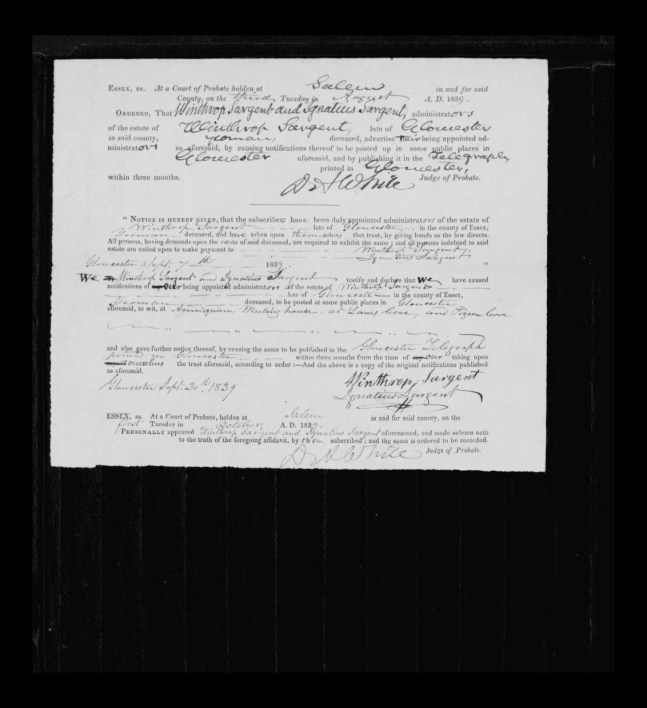 ESSEX, ss. At a Court of Probate holden at Salem in and for said
County, on the third Tuesday in August A. D. 1839.
ORDERED, That Winthrop Sargent and Ignatius Sargent, administrators
of the estate of Winthrop Sargent, late of Gloucester
in said county, yeoman, deceased, advertise their being appointed ad-
ministrators as aforesaid, by causing notifications thereof to be posted up in some public places in
Gloucester aforesaid, and by publishing it in the Telegraph,
printed in Gloucester,
within three months.
D. A. White Judge of Probate.
"NOTICE IS HEREBY GIVEN, that the subscribers have been duly appointed administrators of the estate of
Winthrop Sargent late of Gloucester in the county of Essex,
yeoman deceased, and have taken upon themselves that trust, by giving bonds as the law directs.
All persons, having demands upon the estate of said deceased, are required to exhibit the same; and all persons indebted to said
estate are called upon to make payment to Winthrop Sargent,
Ignatius Sargent
Gloucester Sept. 7th 1839. "
We Winthrop Sargent and Ignatius Sargent testify and declare that We have caused
notifications of our being appointed administrators of the estate of Winthrop Sargent
late of Gloucester in the county of Essex,
Yeoman deceased, to be posted at some public places in Gloucester
aforesaid, to wit, at Annisquam Meeting house at Lanes Cove, and Pigeon Cove
and also gave further notice thereof, by causing the same to be published in the Gloucester Telegraph
printed in Gloucester within three months from the time of our taking upon
ourselves the trust aforesaid, according to order :—And the above is a copy of the original notifications published
as aforesaid.
Gloucester Sept. 30th 1839
Winthrop Sargent
Ignatius Sargent
ESSEX, ss. At a Court of Probate, holden at Salem in and for said county, on the
first Tuesday in October, A. D. 1839.
PERSONALLY appeared Winthrop Sargent and Ignatius Sargent aforenamed, and made solemn oath
to the truth of the foregoing affidavit, by them subscribed; and the same is ordered to be recorded.
D. A. White Judge of Probate.